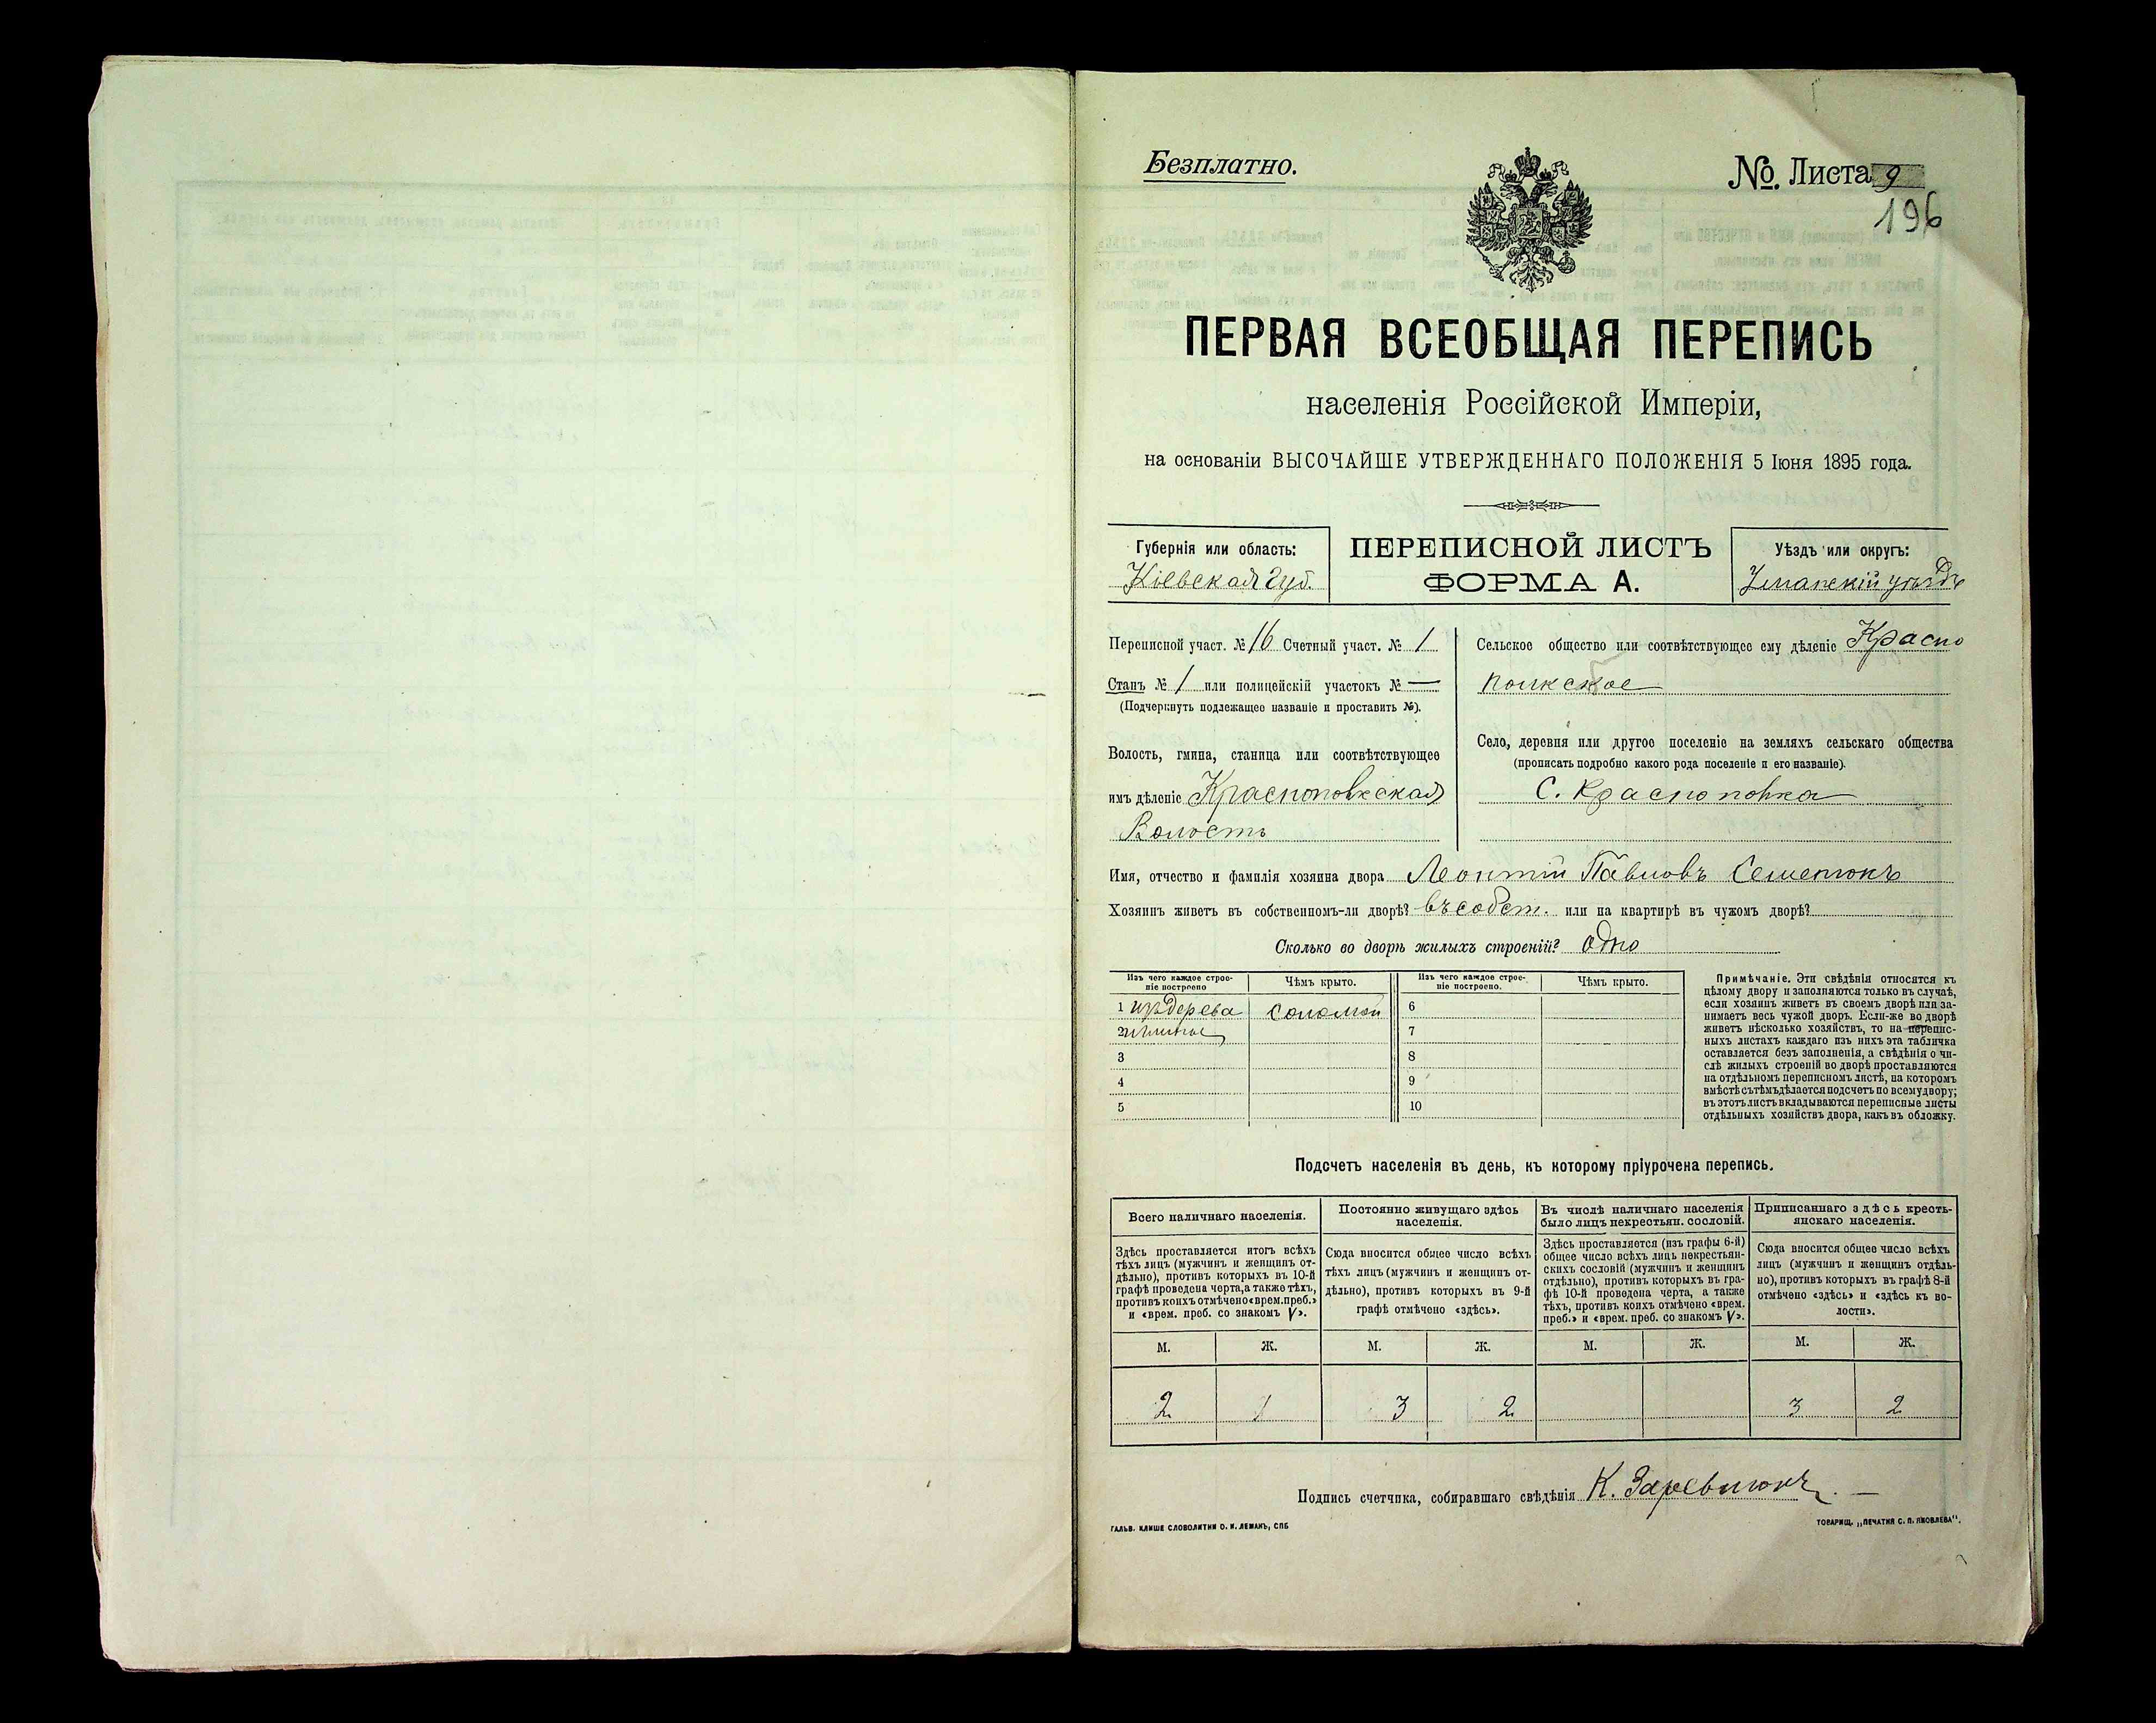 Безплатно.
№ Листа 9
196
ПЕРВАЯ ВСЕОБЩАЯ ПЕРЕПИСЬ
населенія Россійской Имперіи,
на основаніи ВЫСОЧАЙШЕ УТВЕРЖДЕННАГО ПОЛОЖЕНІЯ 5 Іюня 1895 года.
Губернія или область:
Кіевская губ.
ПЕРЕПИСНОЙ ЛИСТЪ
ФОРМА А.
Уѣздъ или округъ:
Уманскій уѣздъ
Переписной участ. № 16 Счетный участ. № 1
Станъ № 1 или полицейскій участокъ № —
(Подчеркнуть подлежащее названіе и проставить №).
Волость, гмина, станица или соотвѣтствующее
имъ дѣленіе Краснополкская
Волость
Сельское общество или соотвѣтствующее ему дѣленіе Красно
полкское
Село, деревня или другое поселеніе на земляхъ сельскаго общества
(прописать подробно какого рода поселеніе и его названіе).
С. Краснополка
Имя, отчество и фамилія хозяина двора Леонтій Павловъ Семенюкъ
Хозяинъ живетъ въ собственномъ-ли дворѣ? въ собст. или на квартирѣ въ чужомъ дворѣ?
Сколько во дворѣ жилыхъ строеній? одно
Изъ чего каждое строе-
ніе построено
Чѣмъ крыто.
Изъ чего каждое строе-
ніе построено.
Чѣмъ крыто.
1 изъ дерева соломой
2 и глины
3
4
5
6
7
8
9
10
Примѣчаніе. Эти свѣдѣнія относятся къ
цѣлому двору и заполняются только въ случаѣ,
если хозяинъ живетъ въ своемъ дворѣ или за-
нимаетъ весь чужой дворъ. Если-же во дворѣ
живетъ нѣсколько хозяйствъ, то на перепис-
ныхъ листахъ каждаго изъ нихъ эта табличка
оставляется безъ заполненія, а свѣдѣнія о чи-
слѣ жилыхъ строеній во дворѣ проставляются
на отдѣльномъ переписномъ листѣ, на которомъ
вмѣстѣ съ тѣмъ дѣлается подсчетъ по всему двору;
въ этотъ листъ вкладываются переписные листы
отдѣльныхъ хозяйствъ двора, какъ въ обложку.
Подсчетъ населенія въ день, къ которому пріурочена перепись.
Всего наличнаго населенія.
Здѣсь проставляется итогъ всѣхъ
тѣхъ лицъ (мужчинъ и женщинъ от-
дѣльно), противъ которыхъ въ 10-й
графѣ проведена черта, а также тѣхъ,
противъ коихъ отмѣчено «врем. преб.»
и «врем. преб. со знакомъ V».
Постоянно живущаго здѣсь
населенія.
Сюда вносится общее число всѣхъ
тѣхъ лицъ (мужчинъ и женщинъ от-
дѣльно), противъ которыхъ въ 9-й
графѣ отмѣчено «здѣсь».
Въ числѣ наличнаго населенія
было лицъ некрестьян. сословій.
Здѣсь проставляется (изъ графы 6-й)
общее число всѣхъ лицъ некрестьян-
скихъ сословій (мужчинъ и женщинъ
отдѣльно), противъ которыхъ въ гра-
фѣ 10-й проведена черта, а также
тѣхъ, противъ коихъ отмѣчено «врем.
преб.» и «врем. преб. со знакомъ V».
Приписаннаго здѣсь кресть-
янскаго населенія.
Сюда вносится общее число всѣхъ
лицъ (мужчинъ и женщинъ отдѣль-
но), противъ которыхъ въ графѣ 8-й
отмѣчено «здѣсь» и «здѣсь къ во-
лости».
М. Ж. М. Ж. М. Ж. М. Ж.
2 1 3 2 3 2
Подпись счетчика, собиравшаго свѣдѣнія К.
ГАЛЬВ. КЛИШЕ СЛОВОЛИТНИ О. И. ЛЕМАНЪ, СПБ
ТОВАРИЩ. „ПЕЧАТНЯ С. П. ЯКОВЛЕВА“.